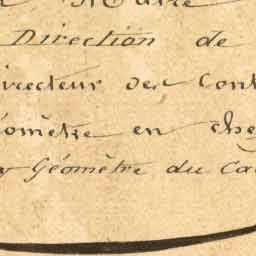 Maire
Direction de
irecteur des Cont
éomètre en che
Géomètre du Ca